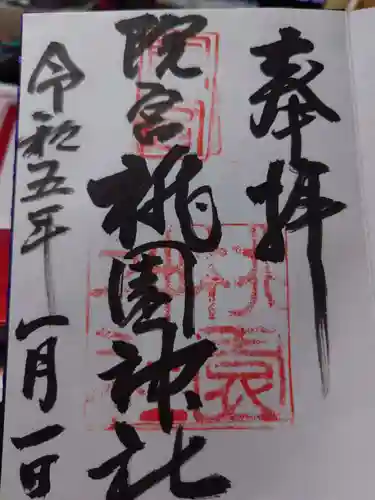 奉拝
院宮祇園神社
令和五年一月一日